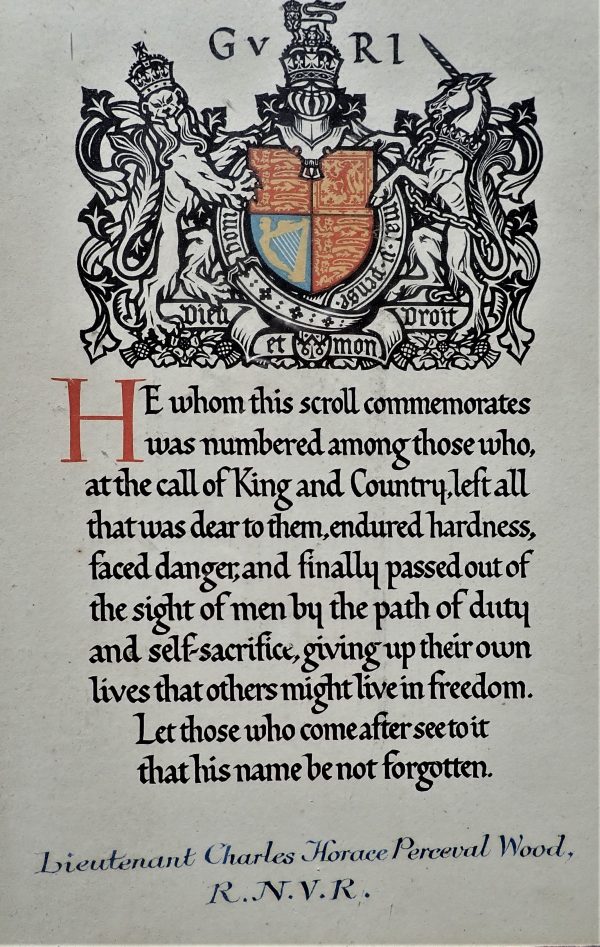 GV RI
mal·y·pense
Dieu Droit
et mon
HE whom this scroll commemorates
was numbered among those who,
at the call of King and Country, left all
that was dear to them, endured hardness,
faced danger, and finally passed out of
the sight of men by the path of duty
and self-sacrifice, giving up their own
lives that others might live in freedom.
Let those who come after see to it
that his name be not forgotten.
Lieutenant Charles Horace Perceval Wood,
R.N.V.R.